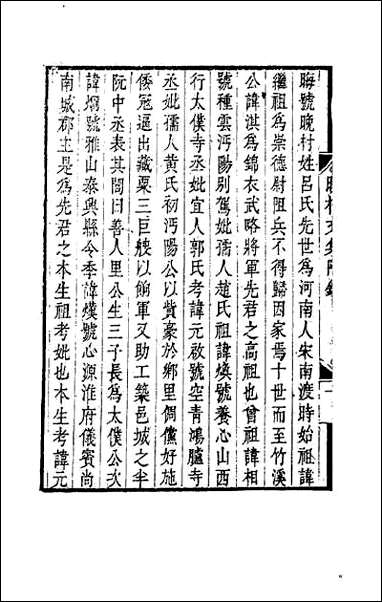 晦號晚村姓呂氏先世為河南人宋南渡時始祖諱
繼祖為崇德尉阻兵不得歸因家焉十世而至竹溪
公諱淇為錦衣武略將軍先君之高祖也曾祖諱相
號種雲沔陽別駕妣孺人趙氏祖諱煥號養心山西
行太僕寺丞妣宜人郭氏考諱元啟號空青鴻臚寺
丞妣孺人黃氏初沔陽公以貲豪於鄉里倜儻好施
倭寇逼出藏粟三巨艘以餉軍又助工築邑城之半
阮中丞表其閭曰善人里公生三子長為太僕公次
諱炯號雅山泰興縣令季諱熯號心源淮府儀賓尚
南城郡主是為先君之本生祖考妣也本生考諱元